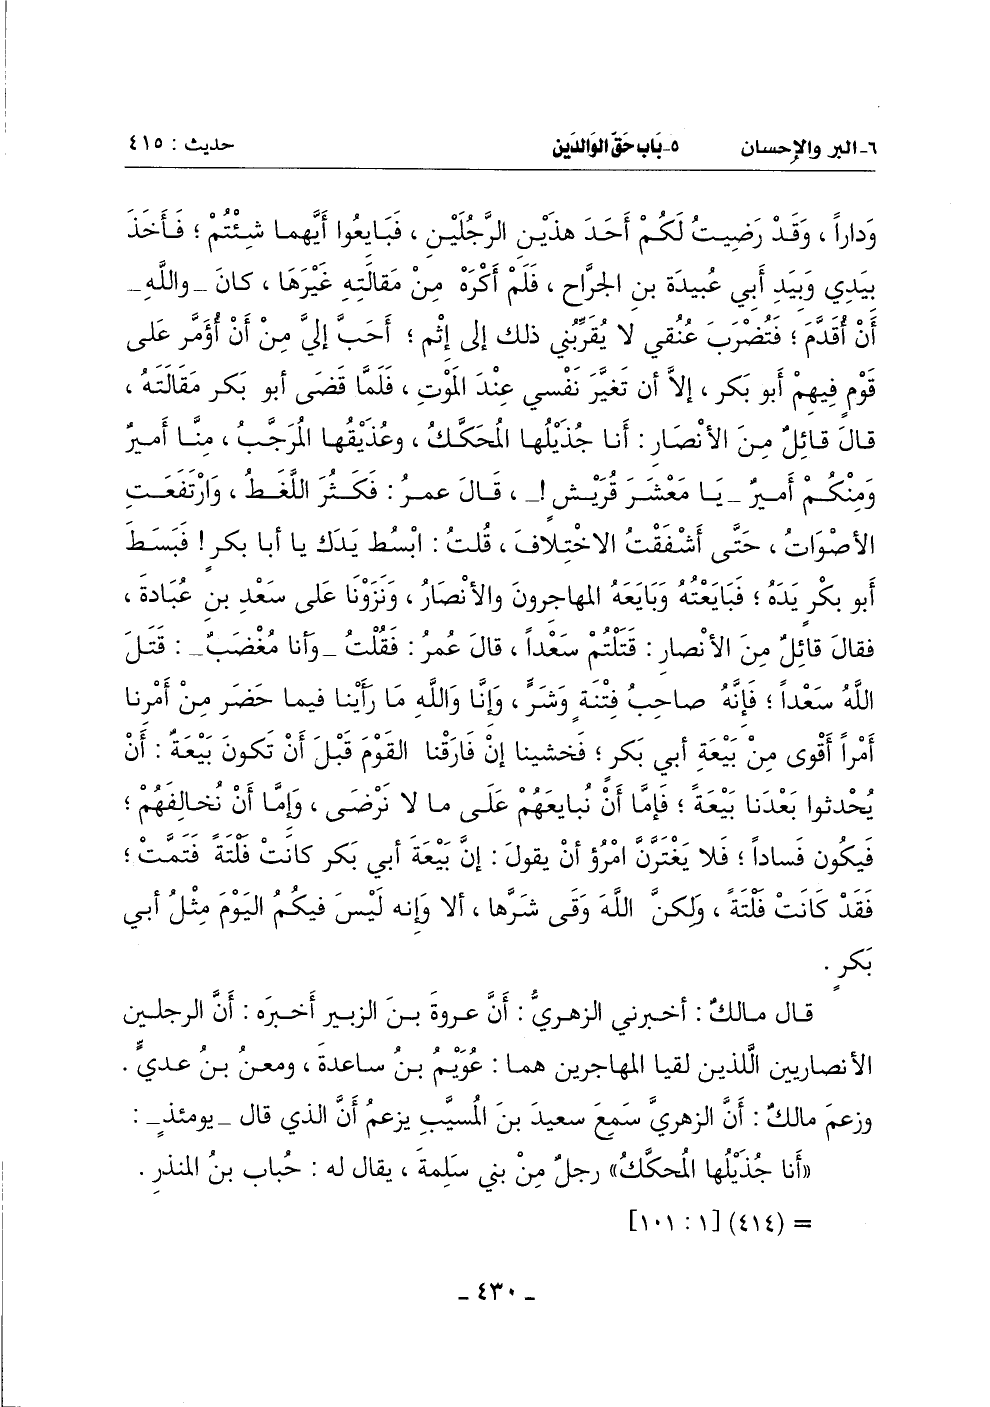 ٦ـ البر والإحسان ٥ـ بَاب حَقّ الوَالدَين حديث : ٤١٥
وَداراً ، وَقَدْ رَضِيتُ لَكُمْ أَحَدَ هذَيْنِ الرَّجُلَيْنِ ، فَبَايِعُوا أَيَّهما شِئْتُمْ ؛ فَأَخَذَ
بيَدِي وَبيَدِ أَبي عُبيدَة بنِ الجرَّاحِ ، فَلَمْ أَكْرَهْ مِنْ مَقَالَتِهِ غَيْرَهَا ، كانَ ـ واللَّهِ ـ
أَنْ أُقَدَّمَ ؛ فَتُضْرَبَ عُنُقي لا يُقَرِّبُني ذلك إلى إثْمٍ ؛ أَحَبَّ إليَّ مِنْ أَنْ أُؤَمَّر عَلى
قَوْمٍ فِيهمْ أَبو بَكر ، إلاَّ أن تَغيَّرَ نَفْسي عِنْدَ المَوْتِ ، فَلَمَّا قَضَى أبو بَكر مَقَالَتَهُ ،
قالَ قائِلٌ مِنَ الأنْصَار : أنا جُذَيْلُها المُحَكَّكُ ، وعُذَيْقُها المُرَجَّبُ ، مِنَّا أَميرٌ
وَمِنْكُمْ أَميرٌ ـ يَا مَعْشَرَ قُرَيْشٍ ! ـ ، قَالَ عمرُ : فَكَثُرَ اللَّغَطُ ، وَارْتَفَعَتِ
الأصْوَاتُ ، حَتَّى أَشْفَقْتُ الاخْتِلافَ ، قُلتُ : ابْسُط يَدَكَ يا أبا بكرٍ ! فَبَسَطَ
أَبو بكْرٍ يَدَهُ ؛ فَبَايَعْتُهُ وَبَايَعَهُ المهاجرونَ والأنْصَارُ ، وَنَزَوْنَا عَلى سَعْدِ بنِ عُبَادةَ ،
فقالَ قائِلٌ مِنَ الأنْصارِ : قَتَلْتُمْ سَعْداً ، قالَ عُمرُ : فَقُلْتُ ـ وَأنا مُغْضَبٌ ـ : قَتَلَ
اللَّهُ سَعْداً ؛ فَإنَّهُ صاحِبُ فِتْنَةٍ وَشَرٍّ ، وَإنَّا وَاللَّهِ مَا رَأَيْنا فيما حَضَر مِنْ أَمْرِنا
أَمْراً أَقْوى مِنْ بَيْعَةِ أَبي بَكر ؛ فَخشينا إنْ فَارَقْنا القَوْمَ قَبْلَ أَنْ تَكونَ بَيْعَةٌ : أَنْ
يُحْدثوا بَعْدَنا بَيْعَةً ؛ فَإِمَّا أَنْ نُبايعَهُمْ عَلَى ما لا نَرْضَى ، وَإِمَّا أَنْ نُخالِفَهُمْ ؛
فَيكون فَساداً ؛ فَلا يَغْتَرَّنَّ امْرُؤ أنْ يقولَ : إنَّ بَيْعَةَ أَبي بَكر كانَتْ فَلْتَةً فَتَمَّتْ ؛
فَقَدْ كَانَتْ فَلْتَةً ، ولكنَّ اللَّهَ وَقَى شرَّها ، ألا وَإِنه لَيْسَ فيكُمُ اليَوْمَ مِثْلُ أَبي
بَكرٍ .
قال مالكٌ : أخبرني الزهريُّ : أنَّ عروةَ بنَ الزبيرِ أخبرَه : أنَّ الرجلينِ
الأنصاريين الَّلذين لقيا المهاجرين هما : عُوَيْمُ بنُ ساعدةَ ، ومعنُ بنُ عديٍّ .
وزعمَ مالكٌ : أنَّ الزهريَّ سَمِعَ سعيدَ بنَ المُسيَّبِ يزعمُ أنَّ الذي قال ـ يومئذٍ ـ :
«أَنا جُذَيْلُها المُحكَّكُ» رجلٌ مِنْ بني سَلِمةَ ، يقال له : حُباب بنُ المنذرِ .
= (٤١٤) [١ : ١٠١]
ـ ٤٣٠ ـ